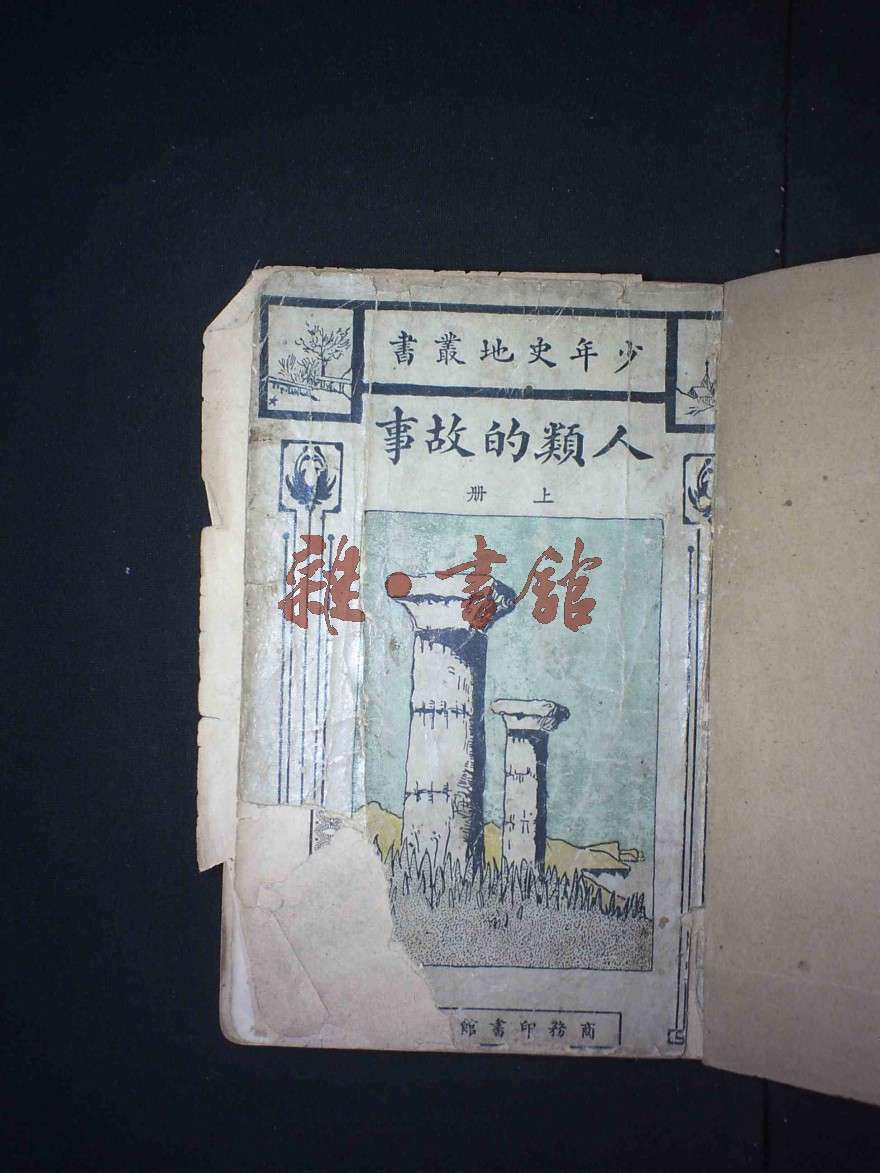 少年史地叢書
人類的故事
上册
雜·書館
商務印書館